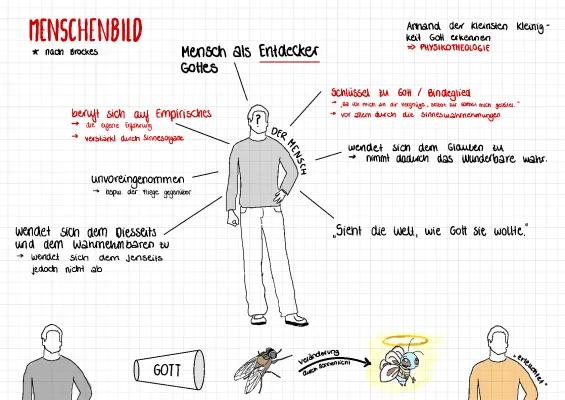 MENSCHENBILD
* nach Brockes
Anhand der kleinsten Kleinig-
keit Gott erkennen
⇒ PHYSIKOTHEOLOGIE
Mensch als Entdecker
Gottes
Schlüssel zu Gott / Bindeglied
→ vor allem durch die Sinneswahrnehmungen
beruft sich auf Empirisches
→ die eigene Erfahrung
→ verstärkt durch Sinnesorgane
?
DER MENSCH
wendet sich dem Glauben zu
→ nimmt dadurch das Wunderbare wahr.
unvoreingenommen
→ bspw. der Fliege gegenüber
wendet sich dem Diesseits
und dem Wahrnehmbaren zu
→ wendet sich dem Jenseits
jedoch nicht ab
„Sieht die Welt, wie Gott sie wollte."
GOTT
Veränderung
durch Sonnenlicht
„erleuchtet"